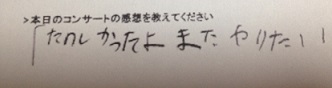 >本日のコンサートの感想を教えてください
たのしかったよ またやりたい!!